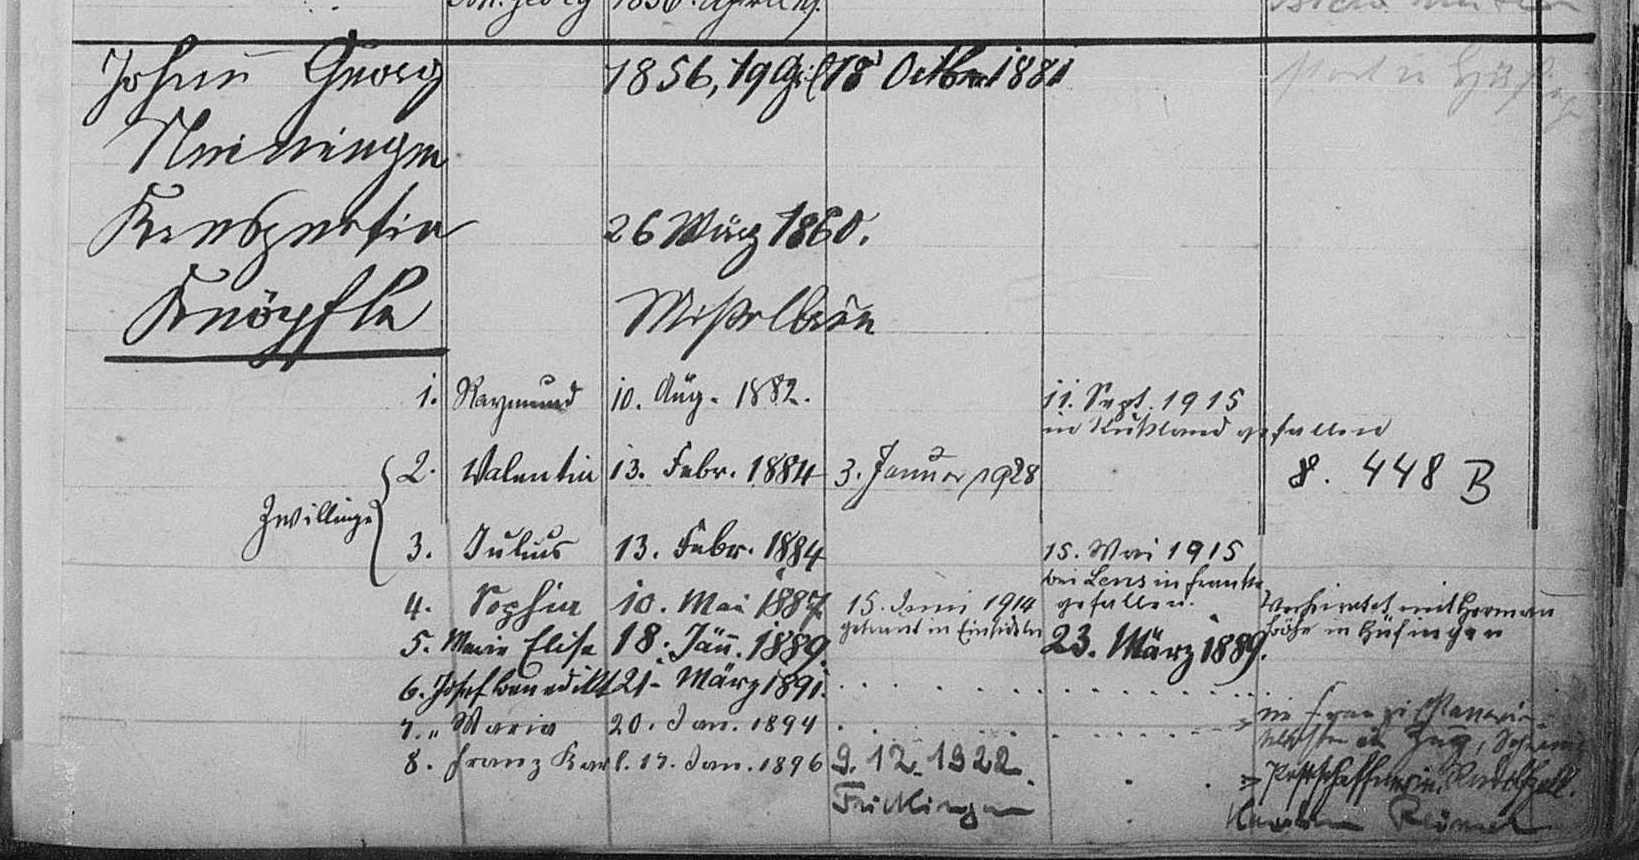 Joh. Georg 1856. April 19.
Johann Georg 1856, 19 April 18 Octbr. 1881
Meiningen
Kreszentia 26 März 1860.
Knöpfle
1. Raymund 10. Aug. 1882. 11. Sept. 1915
in Rußland gefallen
Zwillinge
2. Valentin 13. Febr. 1884 3. Januar 1928 8. 448 B
3. Julius 13. Febr. 1884 15. Mai 1915
bei Lens in Frankr.
gefallen.
4. Sophie 10. Mai 1887 15. Juni 1914 Verheiratet mit Herman
getraut in Einsiedeln in Hüfingen
5. Marie Elise 18. Jän. 1889. 23. März 1889.
6. Josef Benedikt 21. März 1891.
7. " Maria 20. Jan. 1894 in
Zug,
8. Franz Karl. 17. Jan. 1896 9. 12. 1922 Radolfzell.
Frickingen